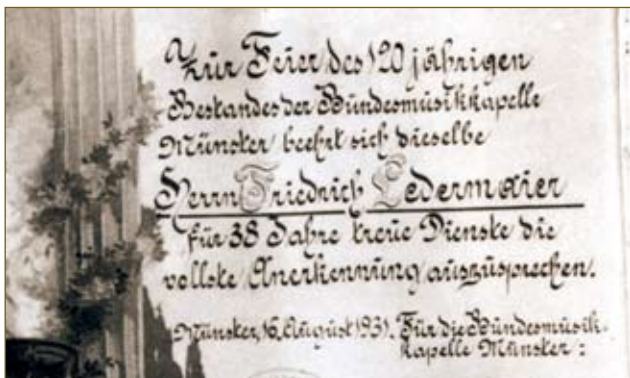 Zur Feier des 120 jährigen
Bestandes der Bundesmusikkapelle
Münster beehrt sich dieselbe
Herrn Friedrich Ledermaier
für 38 Jahre treue Dienste die
vollste Anerkennung auszusprechen.
Münster, 16. August 1931. Für die Bundesmusik-
kapelle Münster: